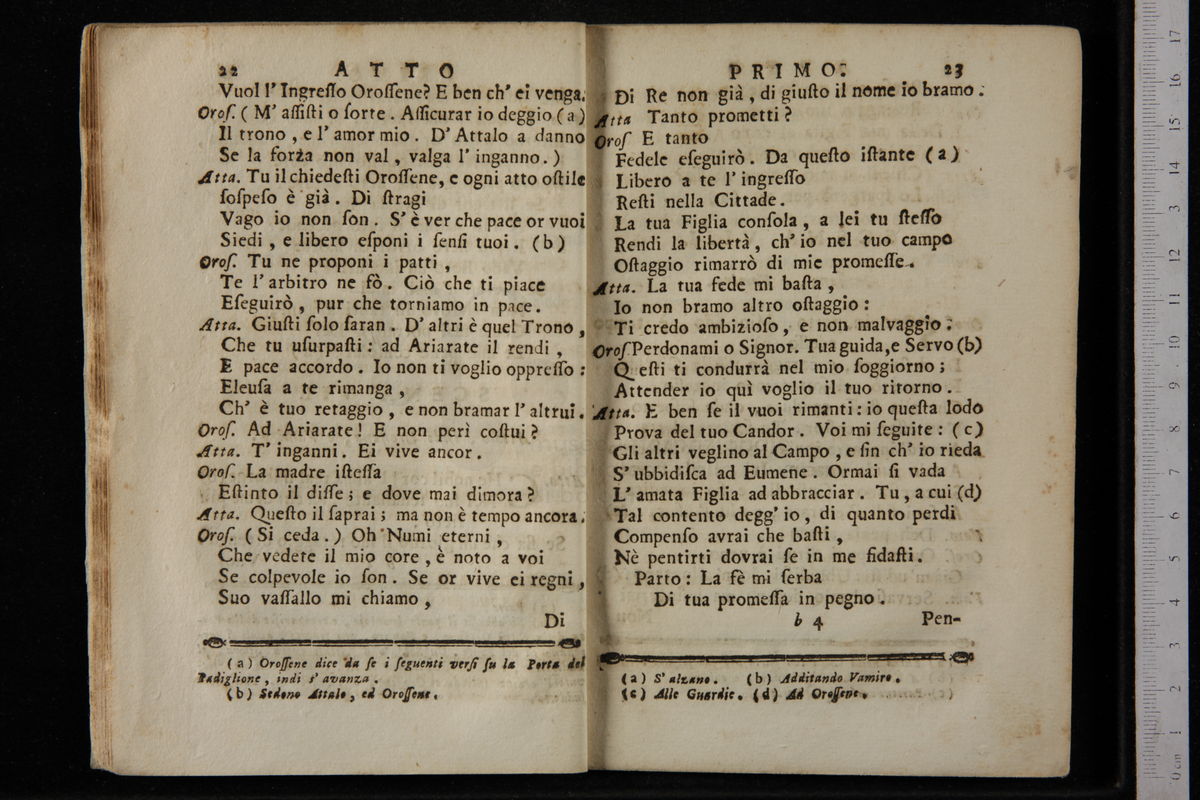 22 ATTO
Vuol l' Ingreſſo Oroſſene? E ben ch' ei venga.
Oroſ. ( M' aſſiſti o ſorte . Aſſicurar io deggio (a)
Il trono , e l' amor mio . D' Attalo a danno
Se la forza non val , valga l' inganno. )
Atta. Tu il chiedeſti Oroſſene, e ogni atto oſtile
ſoſpeſo è già . Di ſtragi
Vago io non ſon . S' è ver che pace or vuoi
Siedi , e libero eſponi i ſenſi tuoi . (b)
Oroſ. Tu ne proponi i patti ,
Te l' arbitro ne fò . Ciò che ti piace
Eſeguirò , pur che torniamo in pace.
Atta. Giuſti ſolo ſaran . D' altri è quel Trono ,
Che tu uſurpaſti : ad Ariarate il rendi ,
E pace accordo . Io non ti voglio oppreſſo :
Eleuſa a te rimanga ,
Ch' è tuo retaggio , e non bramar l' altrui .
Oroſ. Ad Ariarate ! E non perì coſtui ?
Atta. T' inganni . Ei vive ancor .
Oroſ. La madre iſteſſa
Eſtinto il diſſe ; e dove mai dimora ?
Atta. Queſto il ſaprai ; ma non è tempo ancora .
Oroſ. ( Si ceda . ) Oh Numi eterni ,
Che vedete il mio core , è noto a voi
Se colpevole io ſon . Se or vive ei regni ,
Suo vaſſallo mi chiamo ,
Di
(a) Oroſſene dice da ſe i ſeguenti verſi ſu la Porta del
Padiglione , indi s' avanza .
(b) Sedono Attalo , ed Oroſſene .
PRIMO. 23
Di Re non già , di giuſto il nome io bramo .
Atta Tanto prometti ?
Oroſ E tanto
Fedele eſeguirò . Da queſto iſtante (a)
Libero a te l' ingreſſo
Reſti nella Cittade .
La tua Figlia conſola , a lei tu ſteſſo
Rendi la libertà , ch' io nel tuo campo
Oſtaggio rimarrò di mie promeſſe .
Atta. La tua fede mi baſta ,
Io non bramo altro oſtaggio :
Ti credo ambizioſo , e non malvaggio .
Oroſ. Perdonami o Signor. Tua guida, e Servo (b)
Q eſti ti condurrà nel mio ſoggiorno ;
Attender io quì voglio il tuo ritorno .
Atta. E ben ſe il vuoi rimanti : io queſta lodo
Prova del tuo Candor . Voi mi ſeguite : (c)
Gli altri veglino al Campo , e fin ch' io rieda
S' ubbidiſca ad Eumene . Ormai ſi vada
L' amata Figlia ad abbracciar . Tu , a cui (d)
Tal contento degg' io , di quanto perdi
Compenſo avrai che baſti ,
Nè pentirti dovrai ſe in me fidaſti .
Parto : La fè mi ſerba
Di tua promeſſa in pegno .
b 4 Pen-
(a) S' alzano . (b) Additando Vamiro .
(c) Alle Guardie . (d) Ad Oroſſene .